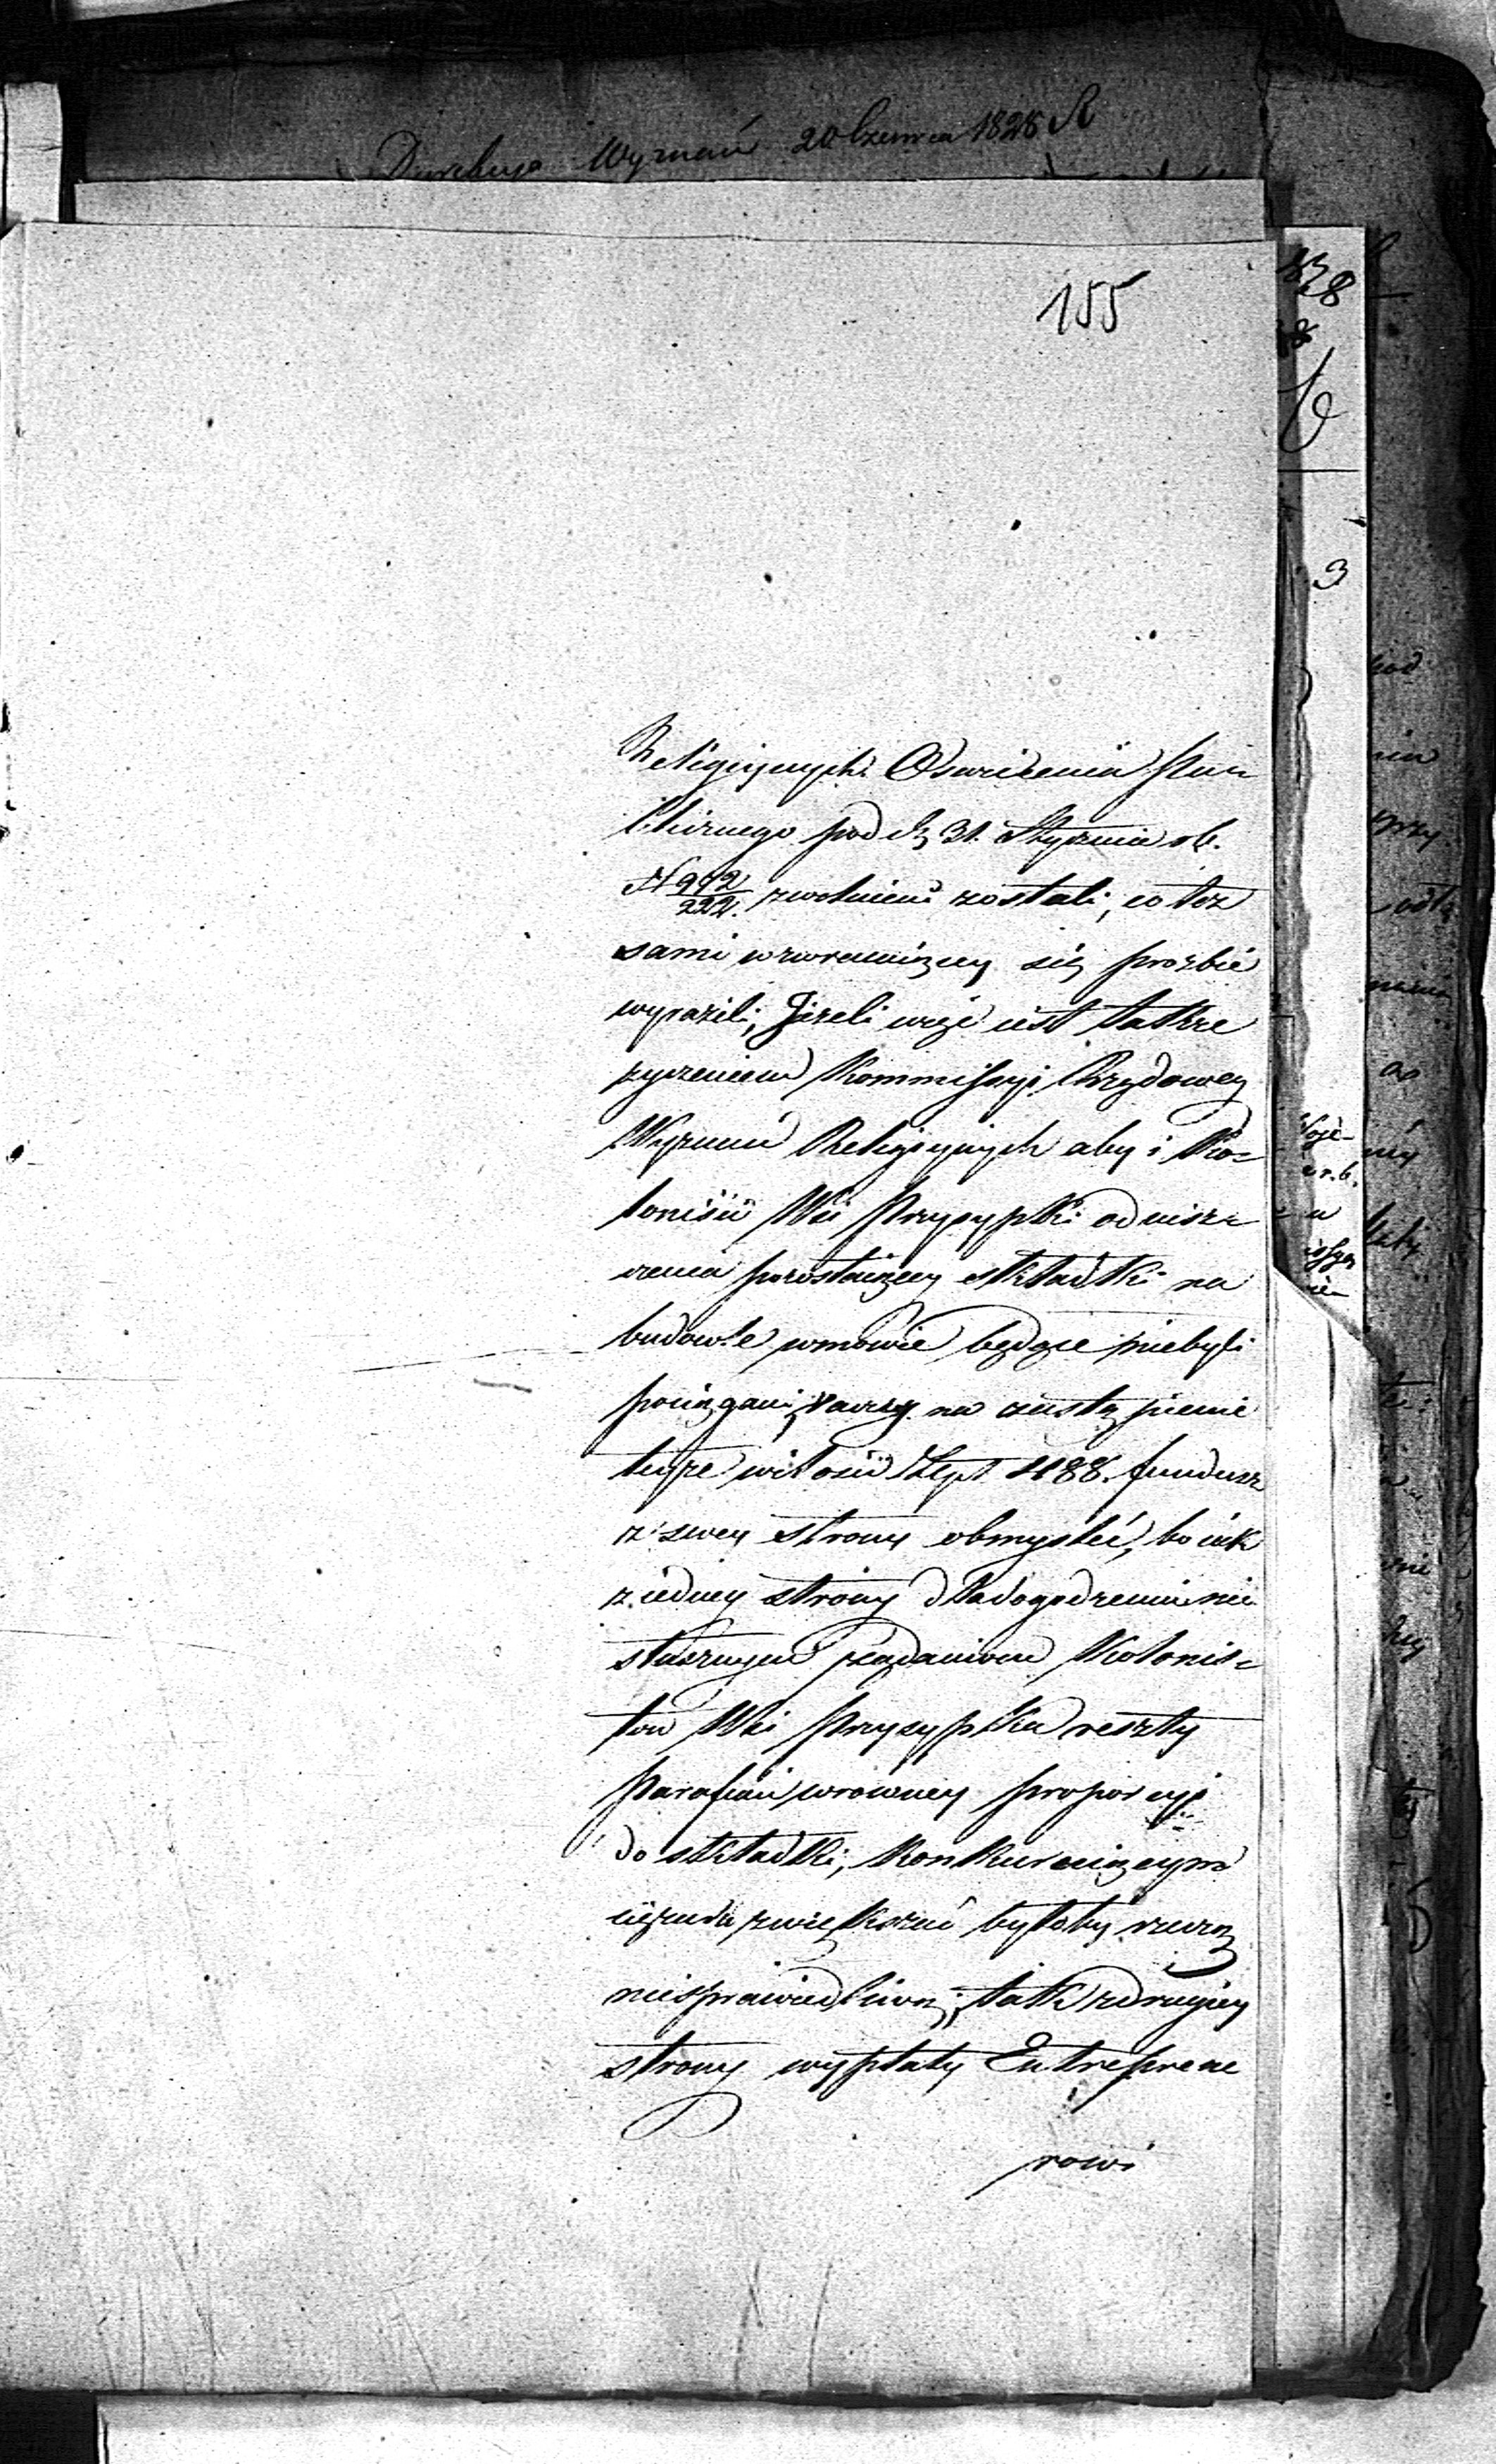 Dyrekcya Wyznań 20 Czerwca 1828 R
155
Religiynych i Oswiecenia Pub=
licznego pod d. 31. Stycznia rb.
N 912/222. zwolnieni zostali, co też
sami w zwracaiącey się prozbie
wyrazili, Jeżeli więc iest także
życzeniem Kommissyi Rządowey
Wyznań Religiynych aby i Ko=
lonisci Wsi Przysypki od uisz=
czenia pozostaiącey składki na
budowle w mowie będące niebyli
pociągani, raczy na zastąpienie
teyże w ilosci Złp 488. fundusz
z swey strony obmysleć, bo iak
z iedney strony dla dogodzenia nie
słusznym żądaniom Kolonis=
tow Wsi Przysypka reszty
Parafian w rowney proporcyi
do składki, Konkuruiącym
ciężaru zwiększać byłoby rzeczą
niesprawiedliwą; tak z drugiey
strony wypłaty Entreprene
rowi